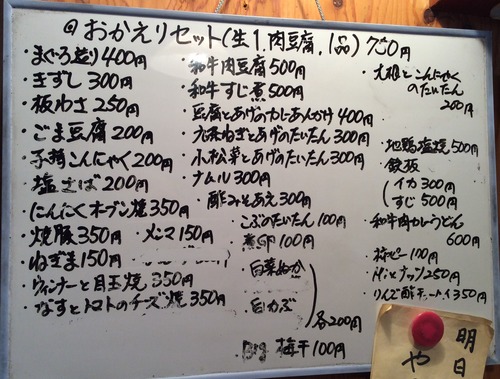 おかえりセット(生1,肉豆腐,1品)750円
・まぐろ造り400円
・きずし 300円
・板わさ 250円
・ごま豆腐200円
・子持こんにゃく200円
・塩さば 200円
・にんにくオーブン焼350円
・焼豚350円
・メンマ150円
・ねぎま150円
・ウィンナーと目玉焼 350円
・なすとトマトのチーズ焼350円
・和牛肉豆腐500円
・和牛すじ煮500円
・豆腐とあげのカニあんかけ400円
・九条ねぎとあげのたいたん300円
・小松菜とあげのたいたん300円
・ナムル 300円
・酢みそあえ300円
・こぶのたいたん 100円
・煮卵100円
・白菜ぬか
・白かぶ
各200円
梅干100円
・大根とこんにゃく
のたいたん
200円
・地鶏塩焼500円
・鉄板
イカ 300円
すじ 500円
・和牛肉カレーうどん
600円
・柿ピー100円
・Mixナッツ250円
・りんご酢
350円
明日
や